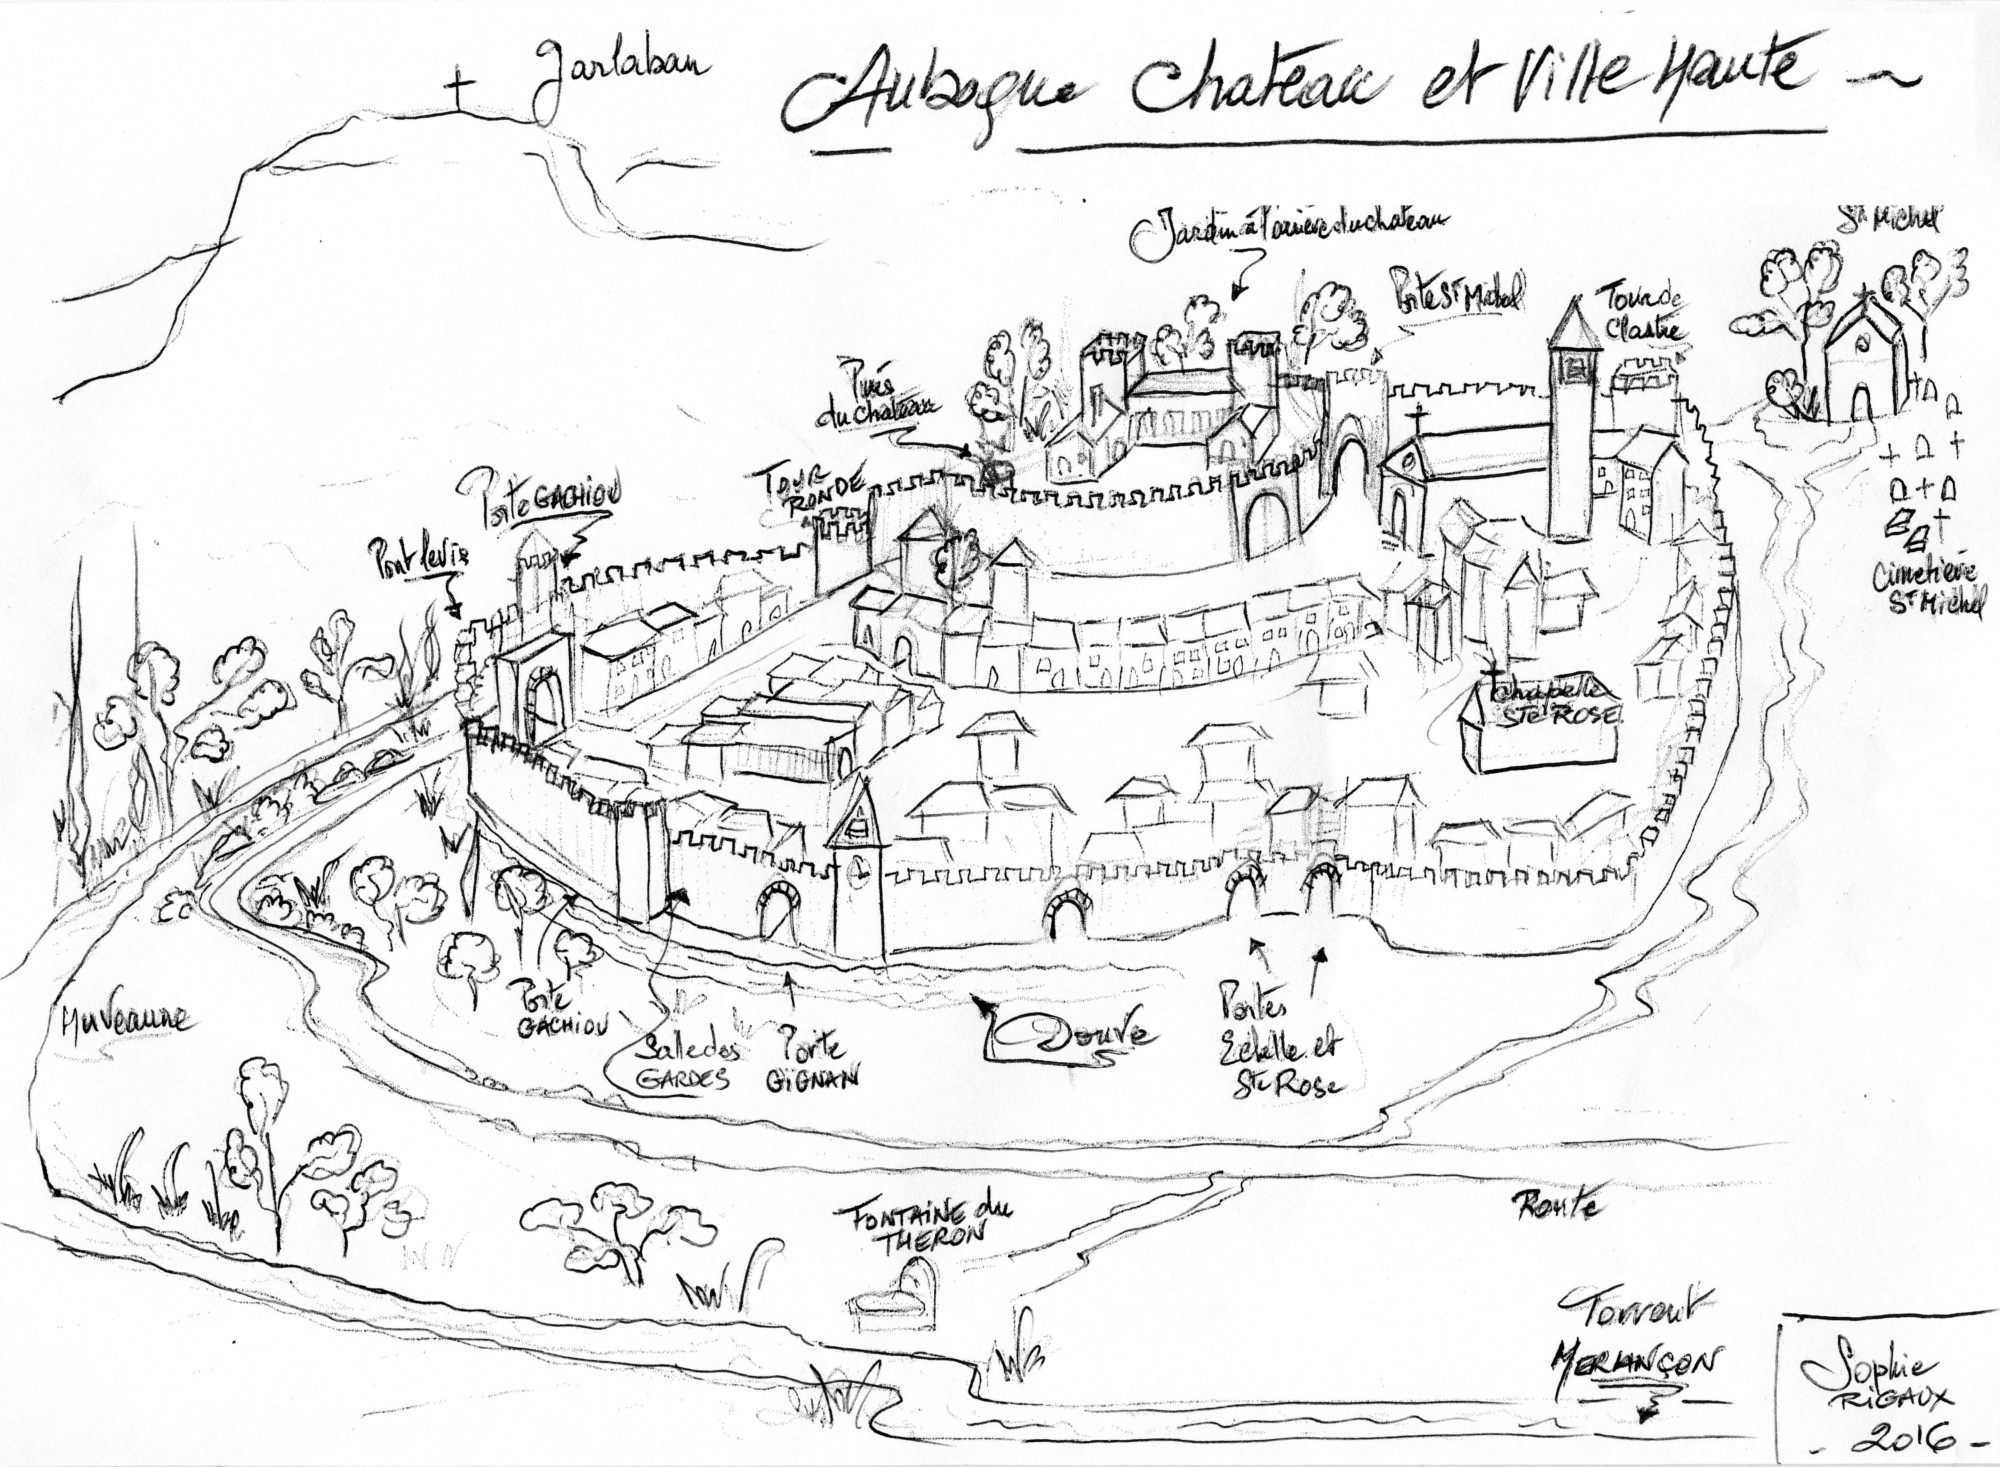 Garlaban
Aubagne Chateau et Ville Haute
Jardin à l'arrière du chateau
St Michel
Porte St Michel
Tour de
Clastre
Puis
du chateau
Tour
RONDE
Porte GACHIOU
Pont levis
Cimetière
St Michel
Chapelle
Ste ROSE
Huveaune
Porte
GACHIOU
Salle des
GARDES
Porte
GIGNAN
Douve
Portes
Echelle et
Ste Rose
FONTAINE du
THERON
Route
Torrent
MERLANÇON
Sophie
RIGAUX
- 2016 -